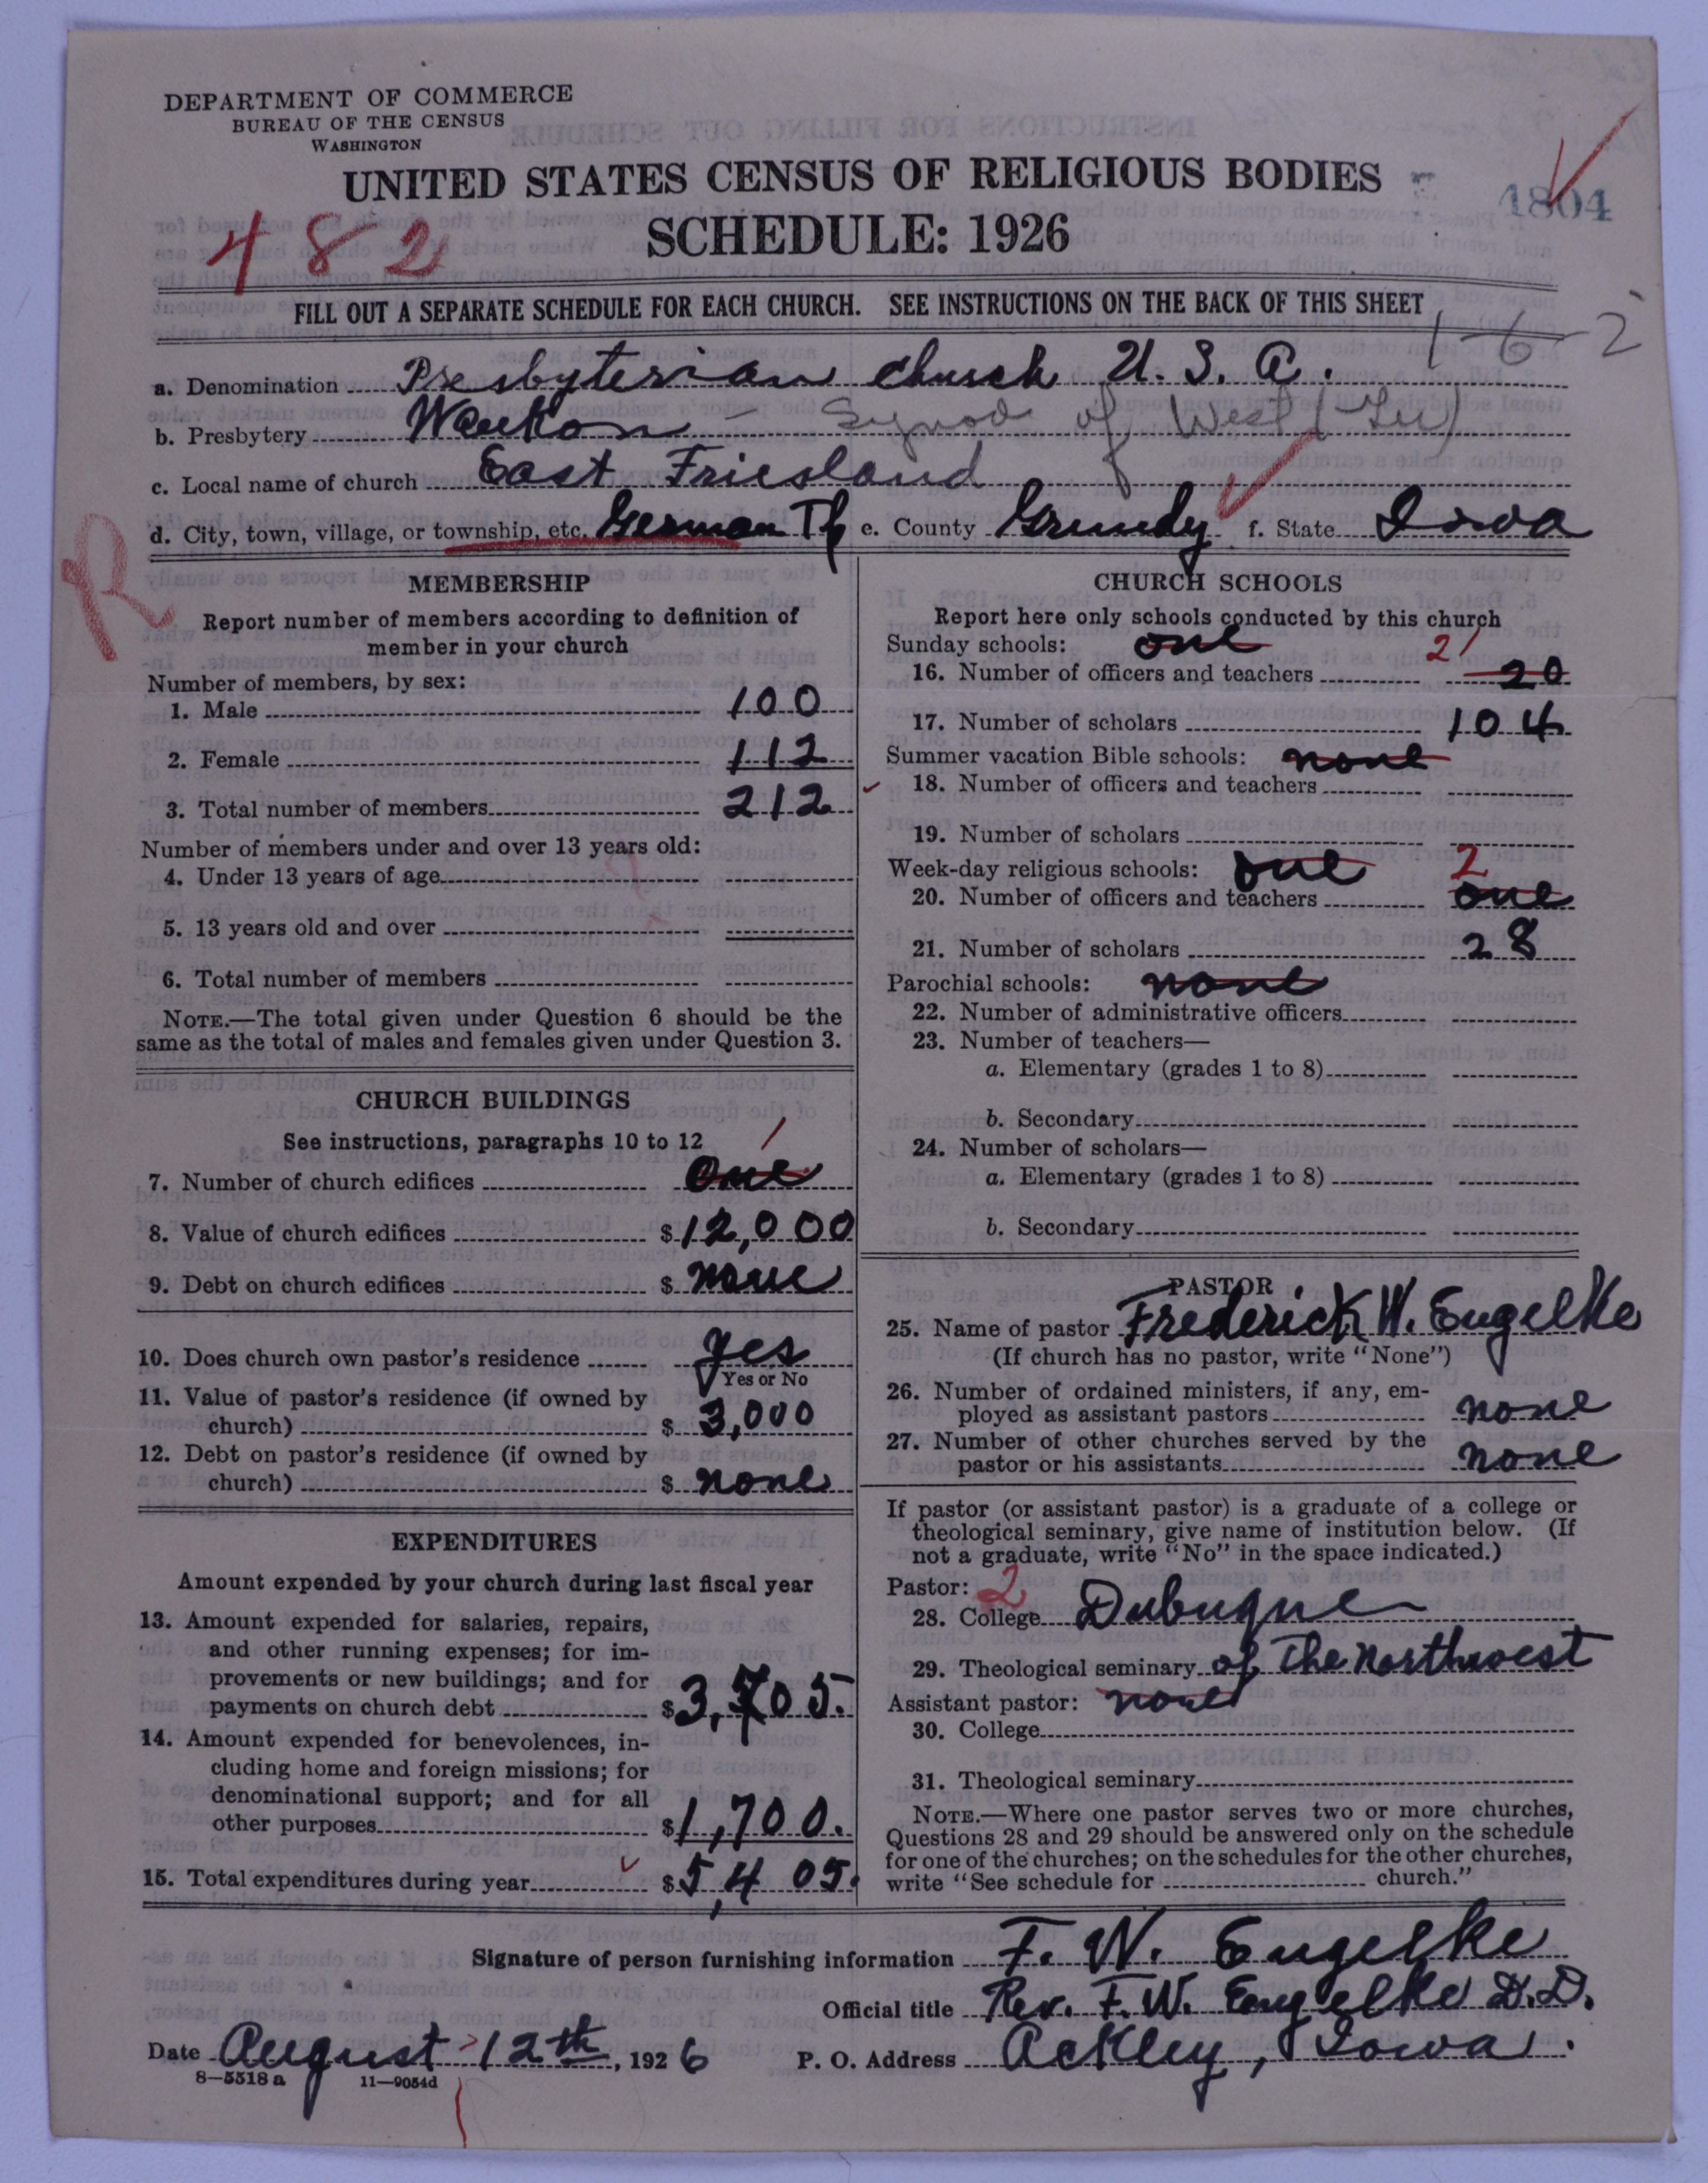 DEPARTMENT OF COMMERCE
BUREAU OF THE CENSUS
WASHINGTON
UNITED STATES CENSUS OF RELIGIOUS BODIES
SCHEDULE: 1926
1804
482
FILL OUT A SEPARATE SCHEDULE FOR EACH CHURCH. SEE INSTRUCTIONS ON THE BACK OF THIS SHEET
1-6-2
a. Denomination Presbyterian church U. S. A.
b. Presbytery Waukon - Synod of West (Ger)
c. Local name of church East Friesland
d. City, town, village, or township, etc. German Tp e. County Grundy f. State Iowa
R
MEMBERSHIP
Report number of members according to definition of
member in your church
Number of members, by sex:
1. Male 100
2. Female 112
3. Total number of members 212
Number of members under and over 13 years old:
4. Under 13 years of age
5. 13 years old and over
6. Total number of members
NOTE.—The total given under Question 6 should be the
same as the total of males and females given under Question 3.
CHURCH BUILDINGS
See instructions, paragraphs 10 to 12
1
7. Number of church edifices one
8. Value of church edifices $12,000
9. Debt on church edifices $ none
10. Does church own pastor's residence yes
Yes or No
11. Value of pastor's residence (if owned by
church) $ 3,000
12. Debt on pastor's residence (if owned by
church) $ none
EXPENDITURES
Amount expended by your church during last fiscal year
13. Amount expended for salaries, repairs,
and other running expenses; for im-
provements or new buildings; and for
payments on church debt $3,705.
14. Amount expended for benevolences, in-
cluding home and foreign missions; for
denominational support; and for all
other purposes $1,700.
15. Total expenditures during year $5,405.
CHURCH SCHOOLS
Report here only schools conducted by this church
Sunday schools: one 21
16. Number of officers and teachers 20
17. Number of scholars 104
Summer vacation Bible schools: none
18. Number of officers and teachers
19. Number of scholars
Week-day religious schools: one 2
20. Number of officers and teachers one
21. Number of scholars 28
Parochial schools: none
22. Number of administrative officers
23. Number of teachers—
a. Elementary (grades 1 to 8)
b. Secondary
24. Number of scholars—
a. Elementary (grades 1 to 8)
b. Secondary
PASTOR
25. Name of pastor Frederick W. Engelke
(If church has no pastor, write "None")
26. Number of ordained ministers, if any, em-
ployed as assistant pastors none
27. Number of other churches served by the
pastor or his assistants none
If pastor (or assistant pastor) is a graduate of a college or
theological seminary, give name of institution below. (If
not a graduate, write "No" in the space indicated.)
Pastor: 2
28. College Dubuque
29. Theological seminary of The Northwest
Assistant pastor: none
30. College
31. Theological seminary
NOTE.—Where one pastor serves two or more churches,
Questions 28 and 29 should be answered only on the schedule
for one of the churches; on the schedules for the other churches,
write "See schedule for church."
Signature of person furnishing information F. W. Engelke
Official title Rev. F. W. Engelke D.D.
Date August 12th, 1926 P. O. Address Ackley, Iowa.
8—5518 a 11—9054d